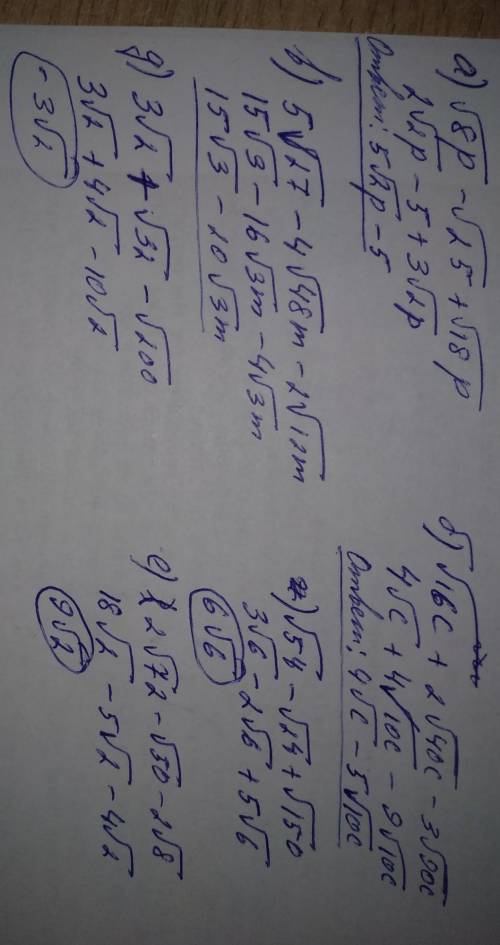 а) √8p - √25 + √18p
2√2p - 5 + 3√2p
Ответ: 5√2p - 5
б) √16c + 2√40c - 3√90c
4√c + 4√10c - 9√10c
Ответ: 4√c - 5√10c
в) 5√27 - 4√48m - 2√12m
15√3 - 16√3m - 4√3m
15√3 - 20√3m
г) √54 - √24 + √150
3√6 - 2√6 + 5√6
6√6
д) 3√2 + √32 - √200
3√2 + 4√2 - 10√2
-3√2
е) 2√72 - √50 - 2√8
18√2 - 5√2 - 4√2
9√2